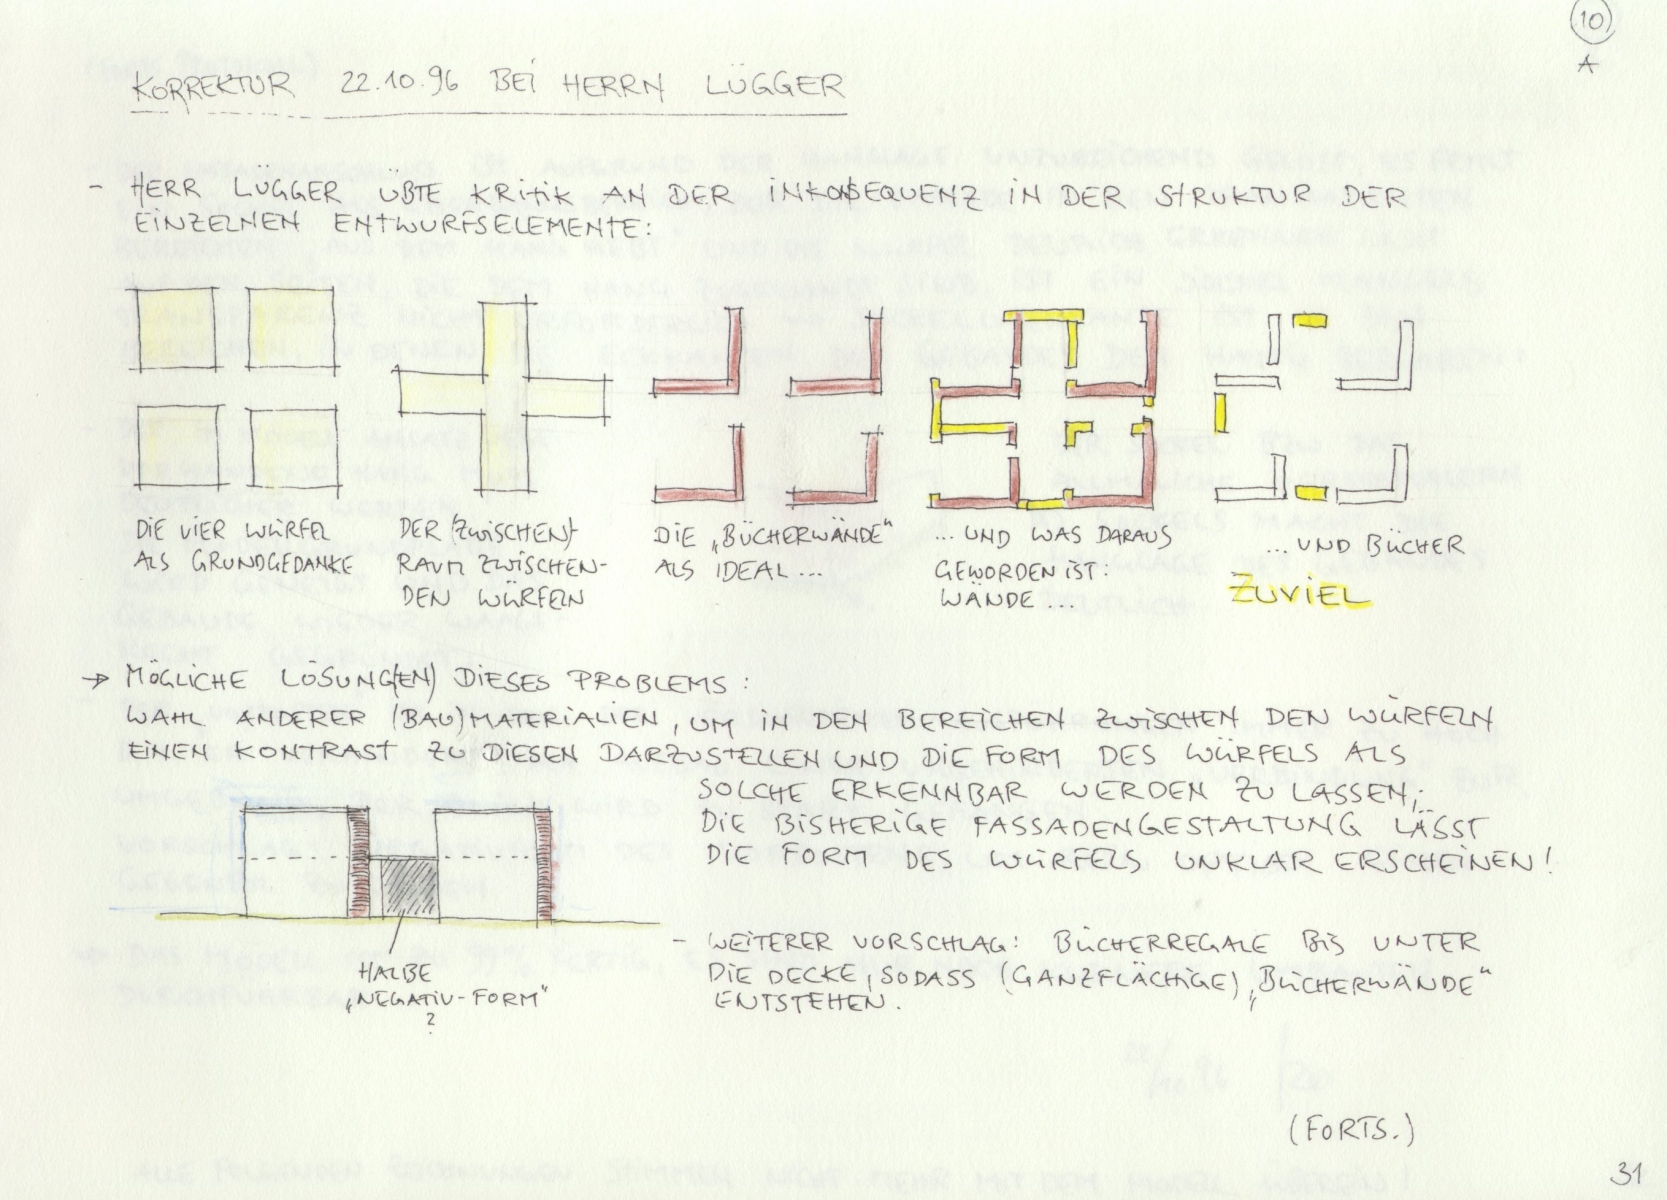 10
A
KORREKTUR 22.10.96 BEI HERRN LÜGGER
- HERR LÜGGER ÜBTE KRITIK AN DER INKONSEQUENZ IN DER STRUKTUR DER
EINZELNEN ENTWURFSELEMENTE:
DIE VIER WÜRFEL
ALS GRUNDGEDANKE
DER (ZWISCHEN)
RAUM ZWISCHEN
DEN WÜRFELN
DIE „BÜCHERWÄNDE“
ALS IDEAL...
... UND WAS DARAUS
GEWORDEN IST:
WÄNDE ...
... UND BÜCHER
ZUVIEL
→ MÖGLICHE LÖSUNG(EN) DIESES PROBLEMS:
WAHL ANDERER (BAU)MATERIALIEN, UM IN DEN BEREICHEN ZWISCHEN DEN WÜRFELN
EINEN KONTRAST ZU DIESEN DARZUSTELLEN UND DIE FORM DES WÜRFELS ALS
SOLCHE ERKENNBAR WERDEN ZU LASSEN;
DIE BISHERIGE FASSADENGESTALTUNG LÄSST
DIE FORM DES WÜRFELS UNKLAR ERSCHEINEN!
HALBE
„NEGATIV-FORM“
?
- WEITERER VORSCHLAG: BÜCHERREGALE BIS UNTER
DIE DECKE, SODASS (GANZFLÄCHIGE) „BÜCHERWÄNDE“
ENTSTEHEN.
(FORTS.)
31